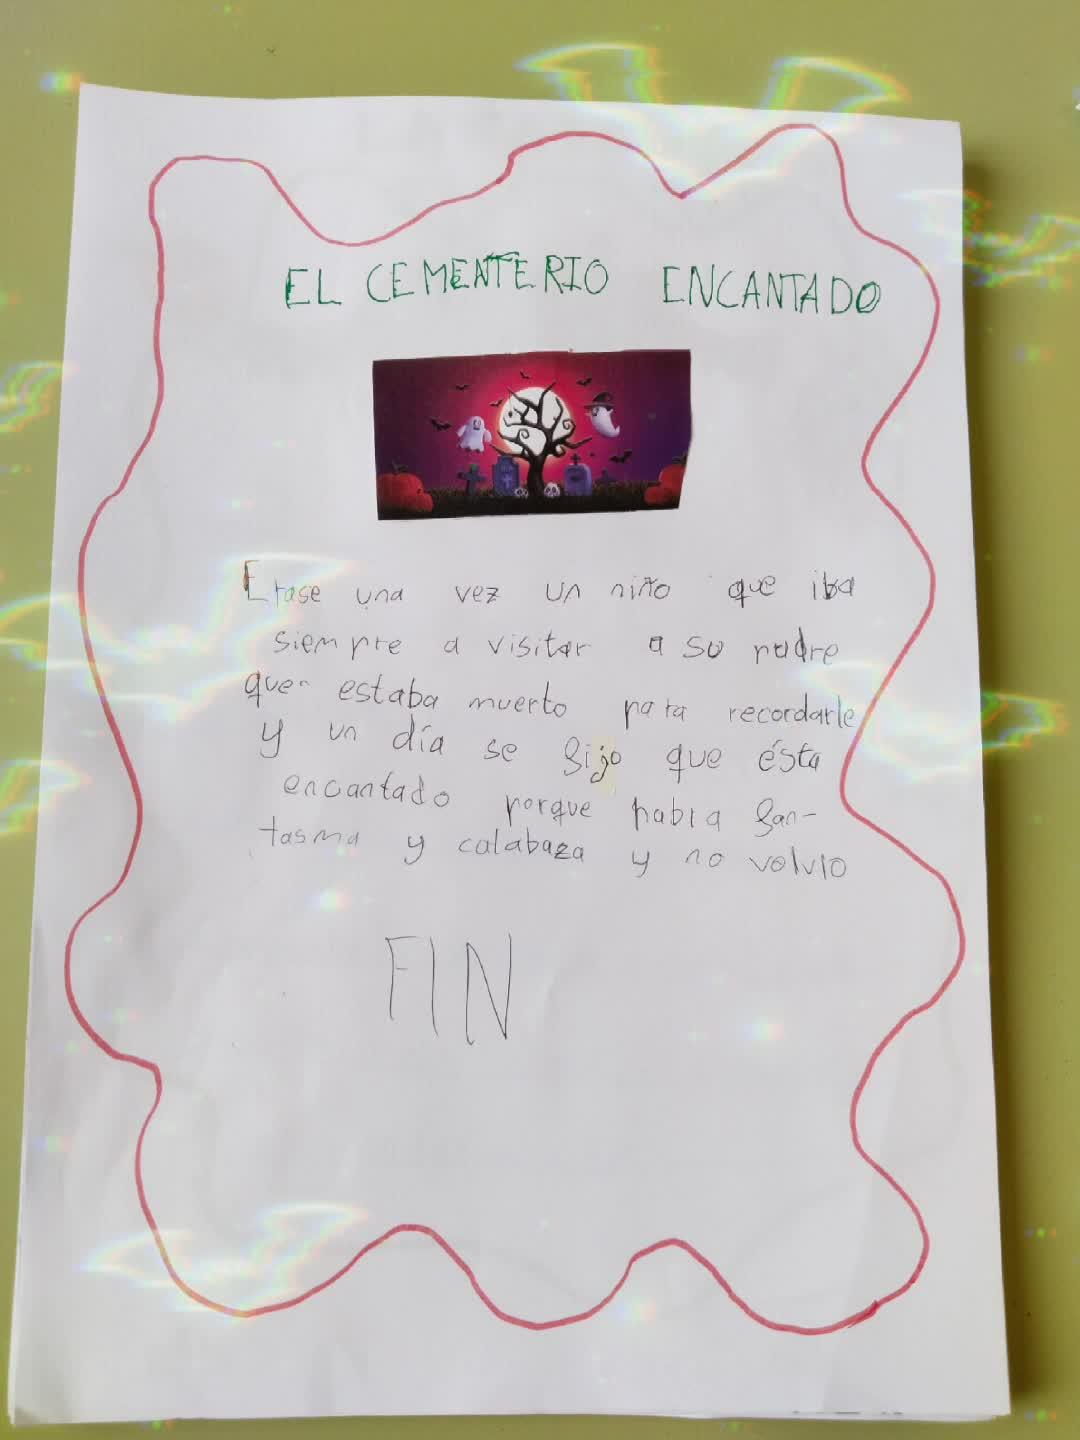 EL CEMENTERIO ENCANTADO
Erase una vez un niño que iba
siempre a visitar a su padre
que estaba muerto para recordarle
y un día se fijo que ésta
encantado porque habia fan-
tasma y calabaza y no volvio
FIN